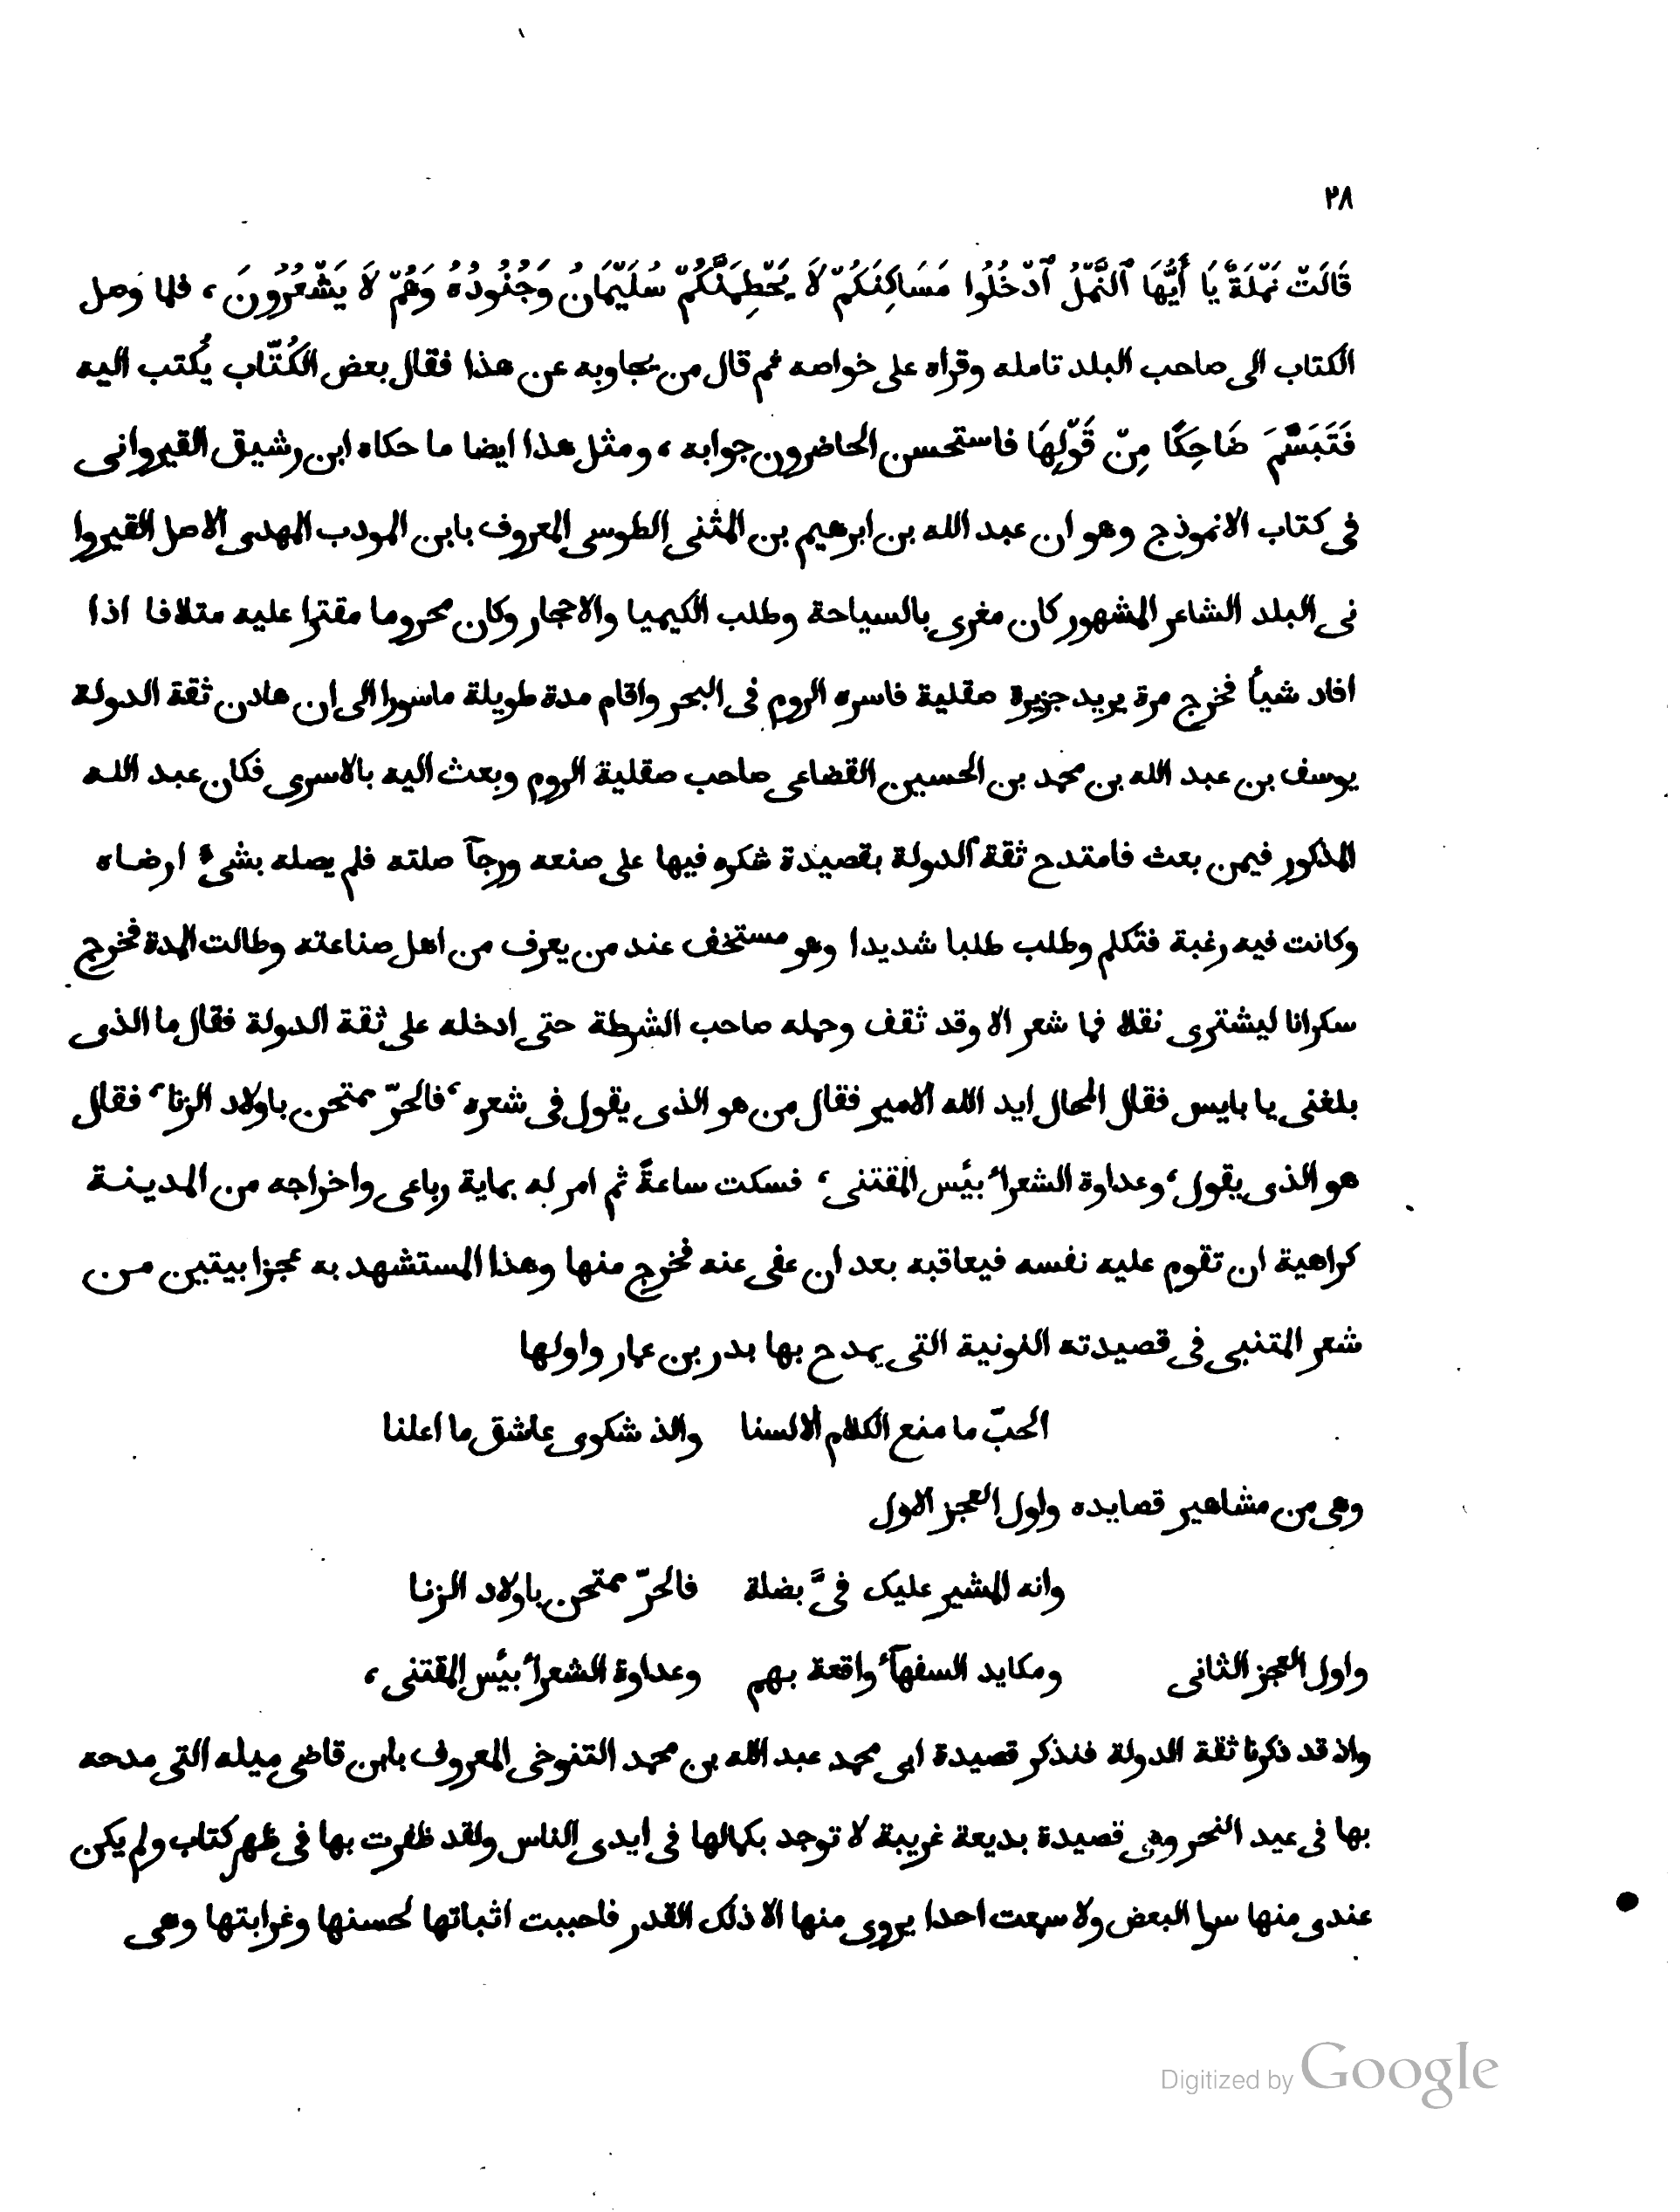 ٢٨
قَالَتْ نَمْلَةٌ يَا أَيُّهَا ٱلنَّمْلُ ٱدْخُلُوا مَسَاكِنَكُمْ لَا يَحْطِمَنَّكُمْ سُلَيْمَانُ وَجُنُودُهُ وَهُمْ لَا يَشْعُرُونَ، فلما وصل
الكتاب الى صاحب البلد تامله وقراه على خواصه ثم قال من يجاوبه عن هذا فقال بعض الكُتّاب يُكتب اليه
فَتَبَسَّمَ ضَاحِكًا مِنْ قَوْلِهَا فاستحسن الحاضرون جوابه، ومثل هذا ايضا ما حكاه ابن رشيق القيروانى
فى كتاب الانموذج وهو ان عبد الله بن ابرهيم بن المثنى الطوسى المعروف بابن المودب المهدى الاصل القيروا
نى البلد الشاعر المشهور كان مغرى بالسياحة وطلب الكيميا والاحجار وكان محروما مقترا عليه متلافا اذا
افاد شيأ فخرج مرة يريد جزيرة صقلية فاسره الروم فى البحر واقام مدة طويلة ماسورا الى ان هادن ثقة الدولة
يوسف بن عبد الله بن محمد بن الحسين القضاعى صاحب صقلية الروم وبعث اليه بالاسرى فكان عبد الله
المذكور فيمن بعث فامتدح ثقة الدولة بقصيدة شكره فيها على صنعه ورجآ صلته فلم يصله بشىء ارضاه
وكانت فيه رغبة فتكلم وطلب طلبا شديدا وهو مستخف عند من يعرف من اهل صناعته وطالت المدة فخرج
سكرانا ليشترى نقلا فما شعر الا وقد ثقف وحمله صاحب الشرطة حتى ادخله على ثقة الدولة فقال ما الذى
بلغنى يا بايس فقال المحال ايد الله الامير فقال من هو الذى يقول فى شعره، فالحرّ ممتحن باولاد الزنا، فقال
هو الذى يقول، وعداوة الشعراء بيئس المقتنى، فسكت ساعةً ثم امر له بماية رباعى واخراجه من المدينة
كراهية ان تقوم عليه نفسه فيعاقبه بعد ان عفى عنه فخرج منها وهذا المستشهد به عجزا بيتين من
شعر المتنبى فى قصيدته النونية التى يمدح بها بدر بن عمار واولها
الحبّ ما منع الكلام الالسنا والذ شكوى عاشق ما اعلنا
وهى من مشاهير قصايده واول العجز الاول
وانه المشير عليك فىَّ بضلة فالحرّ ممتحن باولاد الزنا
واول العجز الثانى ومكايد السفهآء واقعة بهم وعداوة الشعراء بيئس المقتنى،
واذ قد ذكرنا ثقة الدولة فنذكر قصيدة ابى محمد عبد الله بن محمد التنوخى المعروف بابن قاضى ميله التى مدحه
بها فى عيد النحر وهى قصيدة بديعة غريبة لا توجد بكمالها فى ايدى الناس ولقد ظفرت بها فى ظهر كتاب ولم يكن
عندى منها سوا البعض ولا سمعت احدا يروى منها الا ذلك القدر فاحببت اثباتها لحسنها وغرابتها وهى
Digitized by Google